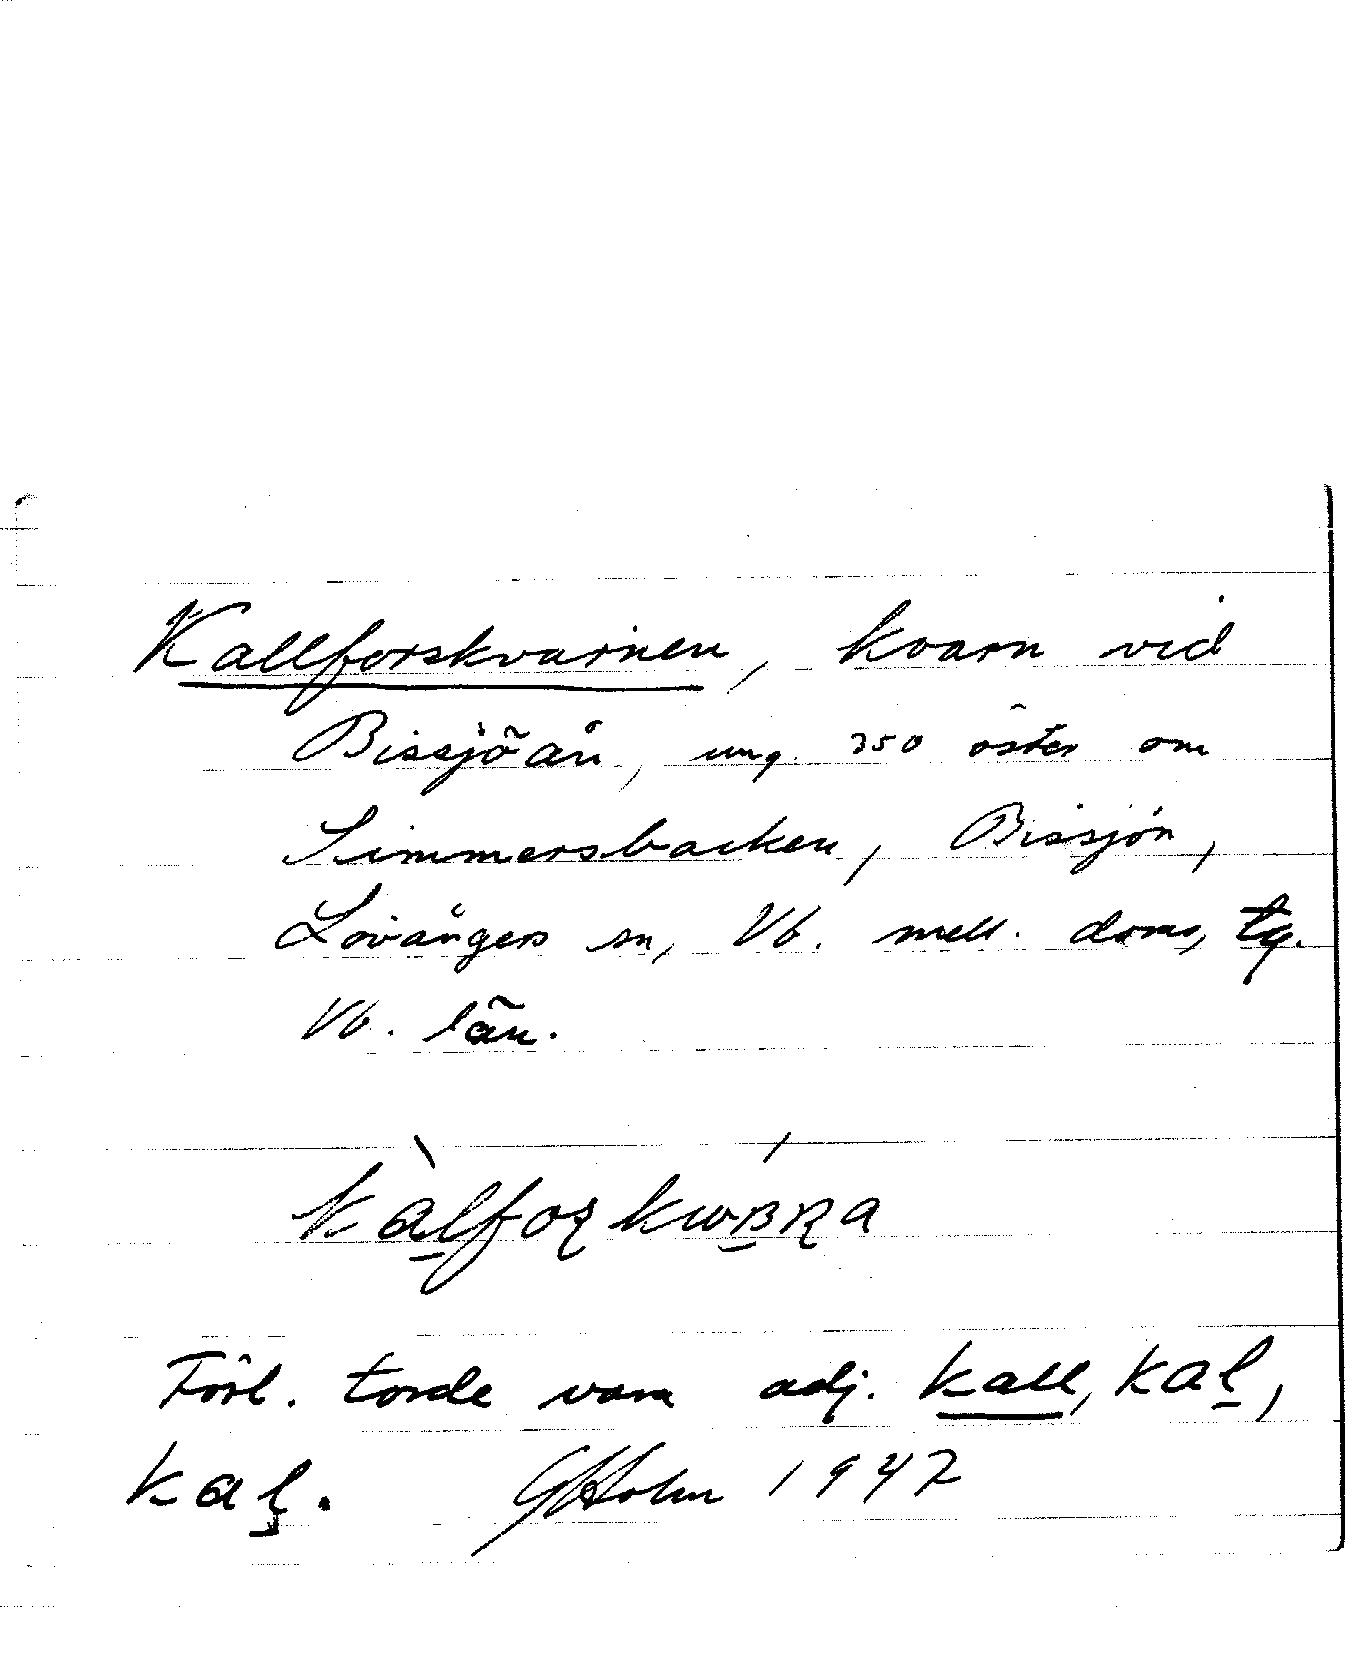 Kallforskvarnen, kvarn vid
Bissjöån, ung. 350 öster om
Simmersbacken, Bissjön,
Lövångers sn, Vb. mell. doms, tg.
Vb. län.
Förl. torde vara adj. kall, kal,
kal. GHolm 1947